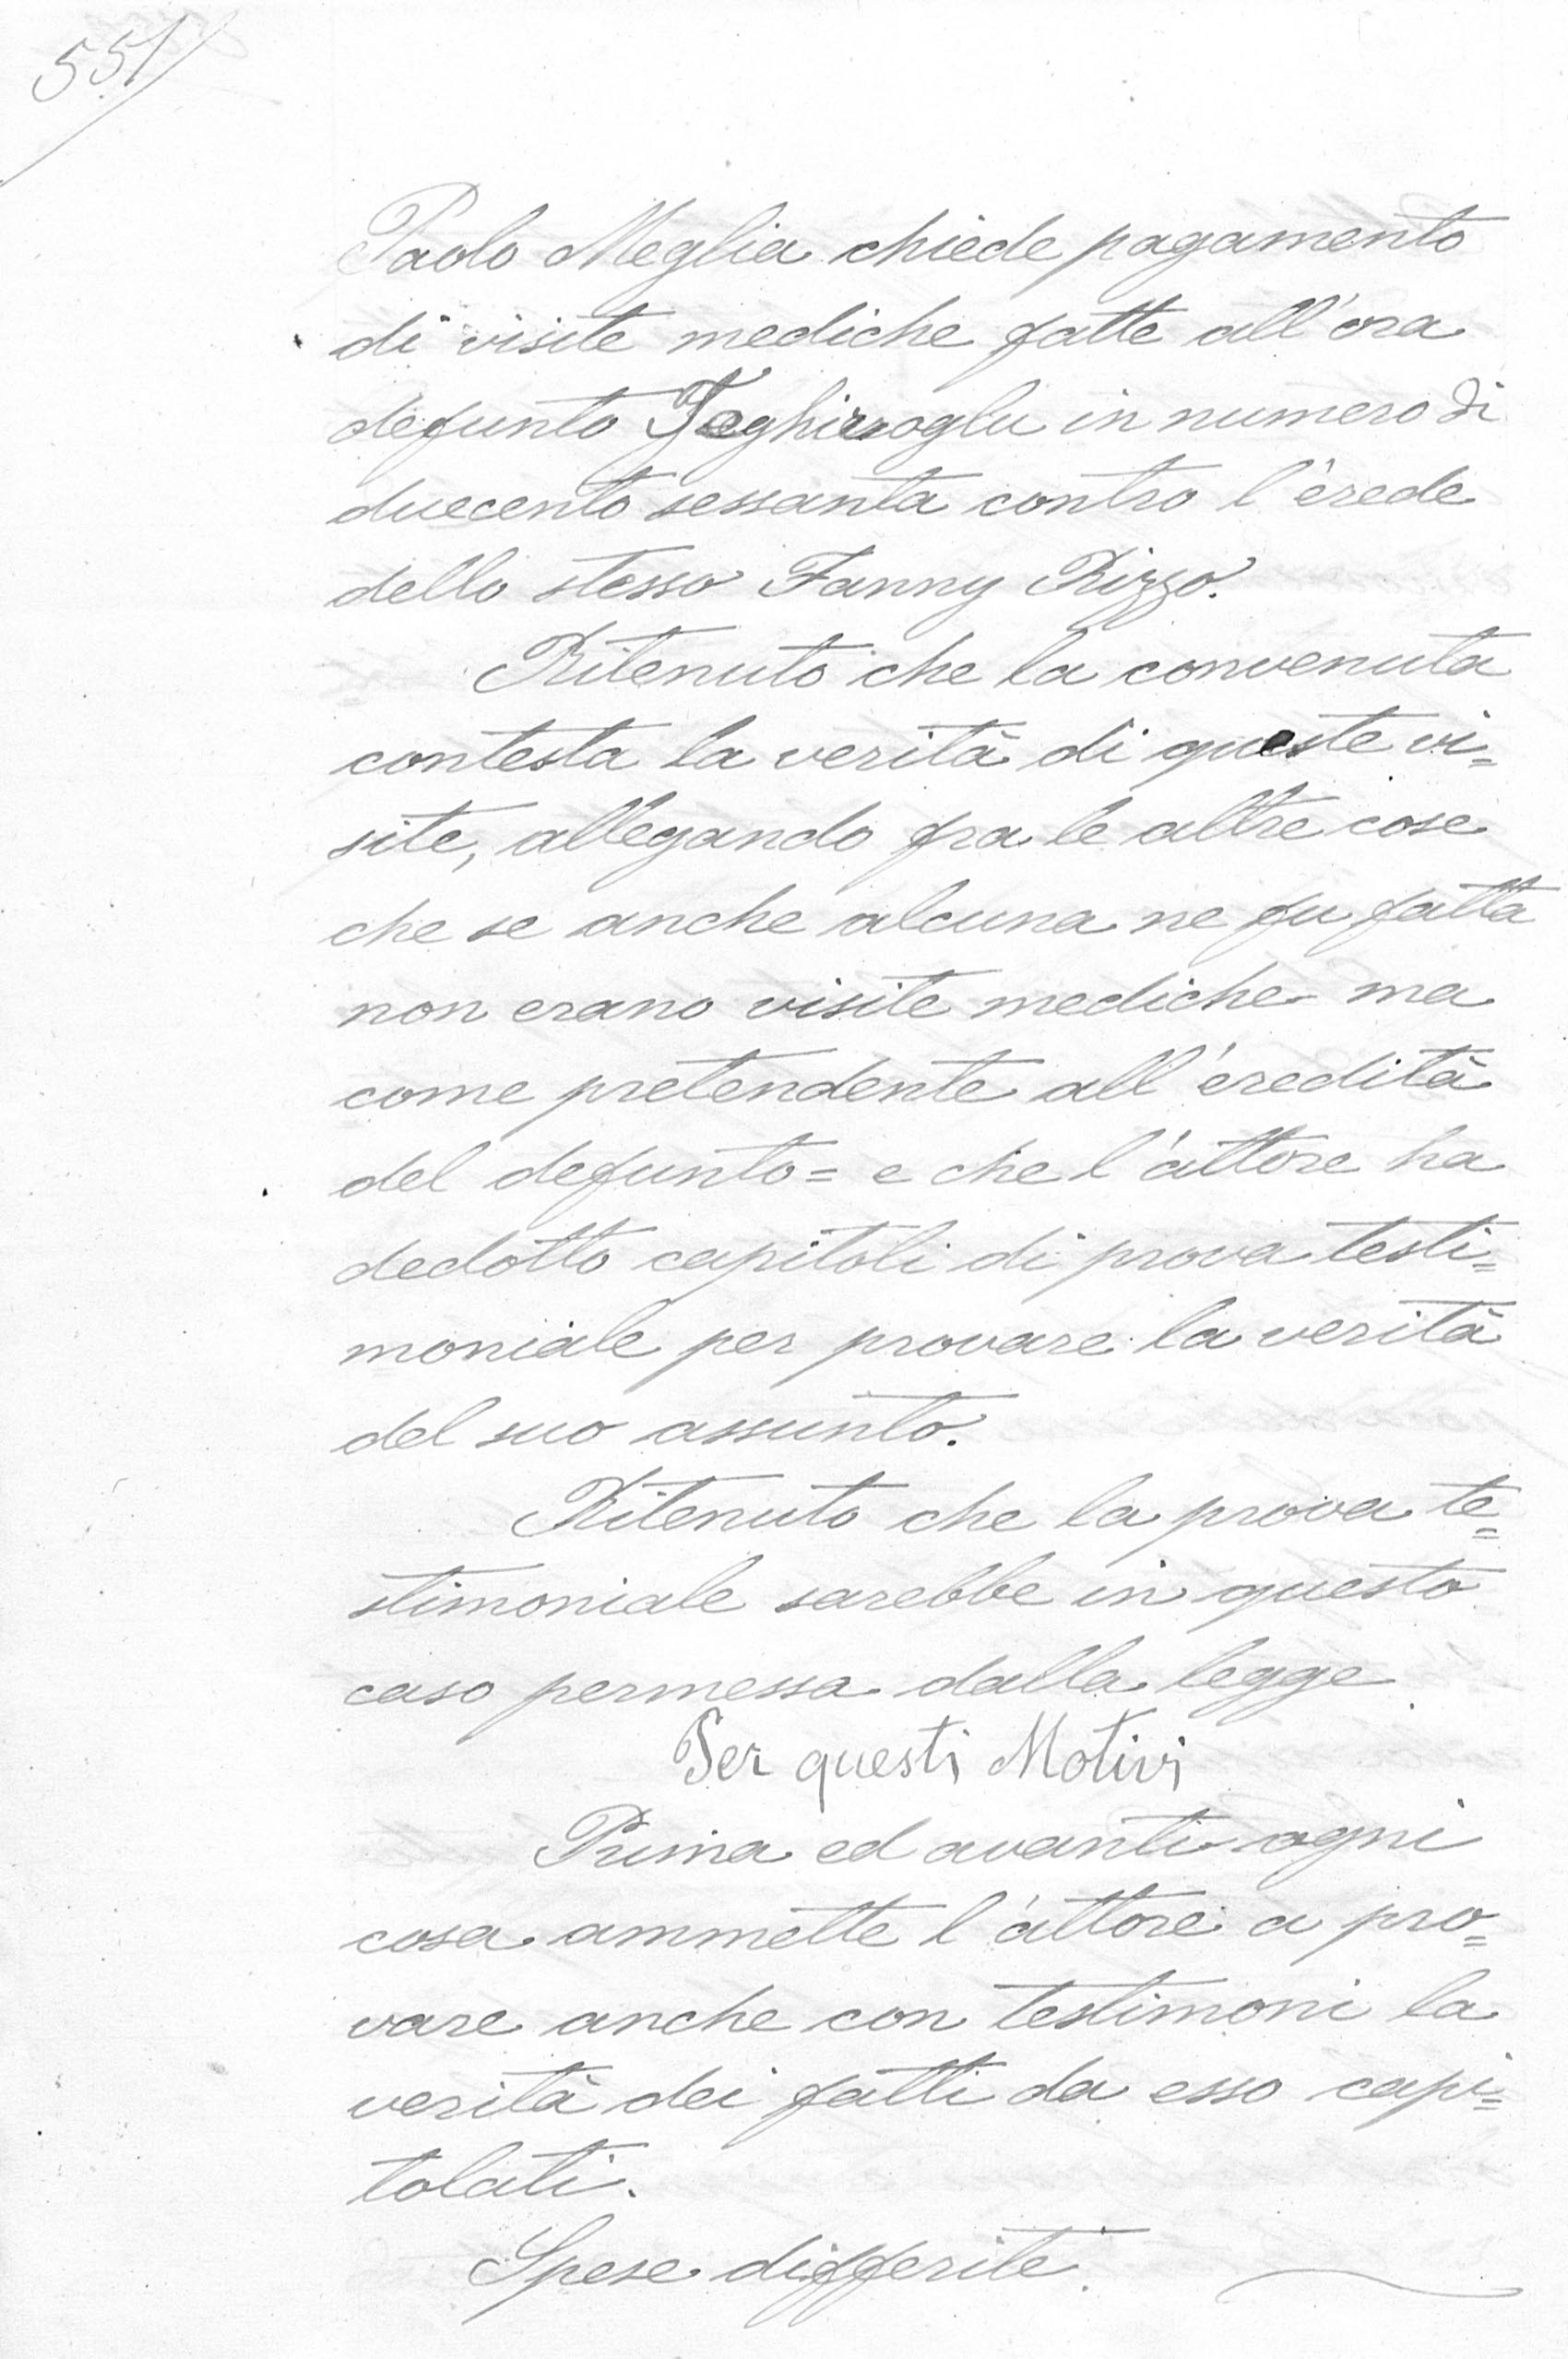 551
Paolo Meglia chiede pagamento
di visite mediche fatte all'ora
defunto Teghirroglu in numero di
duecento sessanta contro l'erede
dello stesso Fanny Rizzo.
Ritenuto che la convenuta
contesta la verità di queste vi=
site, allegando fra le altre cose
che se anche alcuna ne fu fatta
non erano visite mediche ma
come pretendente all'eredità
del defunto = e che l'attore ha
dedotto capitoli di prova testi=
moniale per provare la verità
del suo assunto.
Ritenuto che la prova te=
stimoniale sarebbe in questo
caso permessa dalla legge
Per questi Motivi
Prima ed avanti ogni
cosa ammette l'attore a pro=
vare anche con testimoni la
verità dei fatti da esso capi=
tolati.
Spese differite.